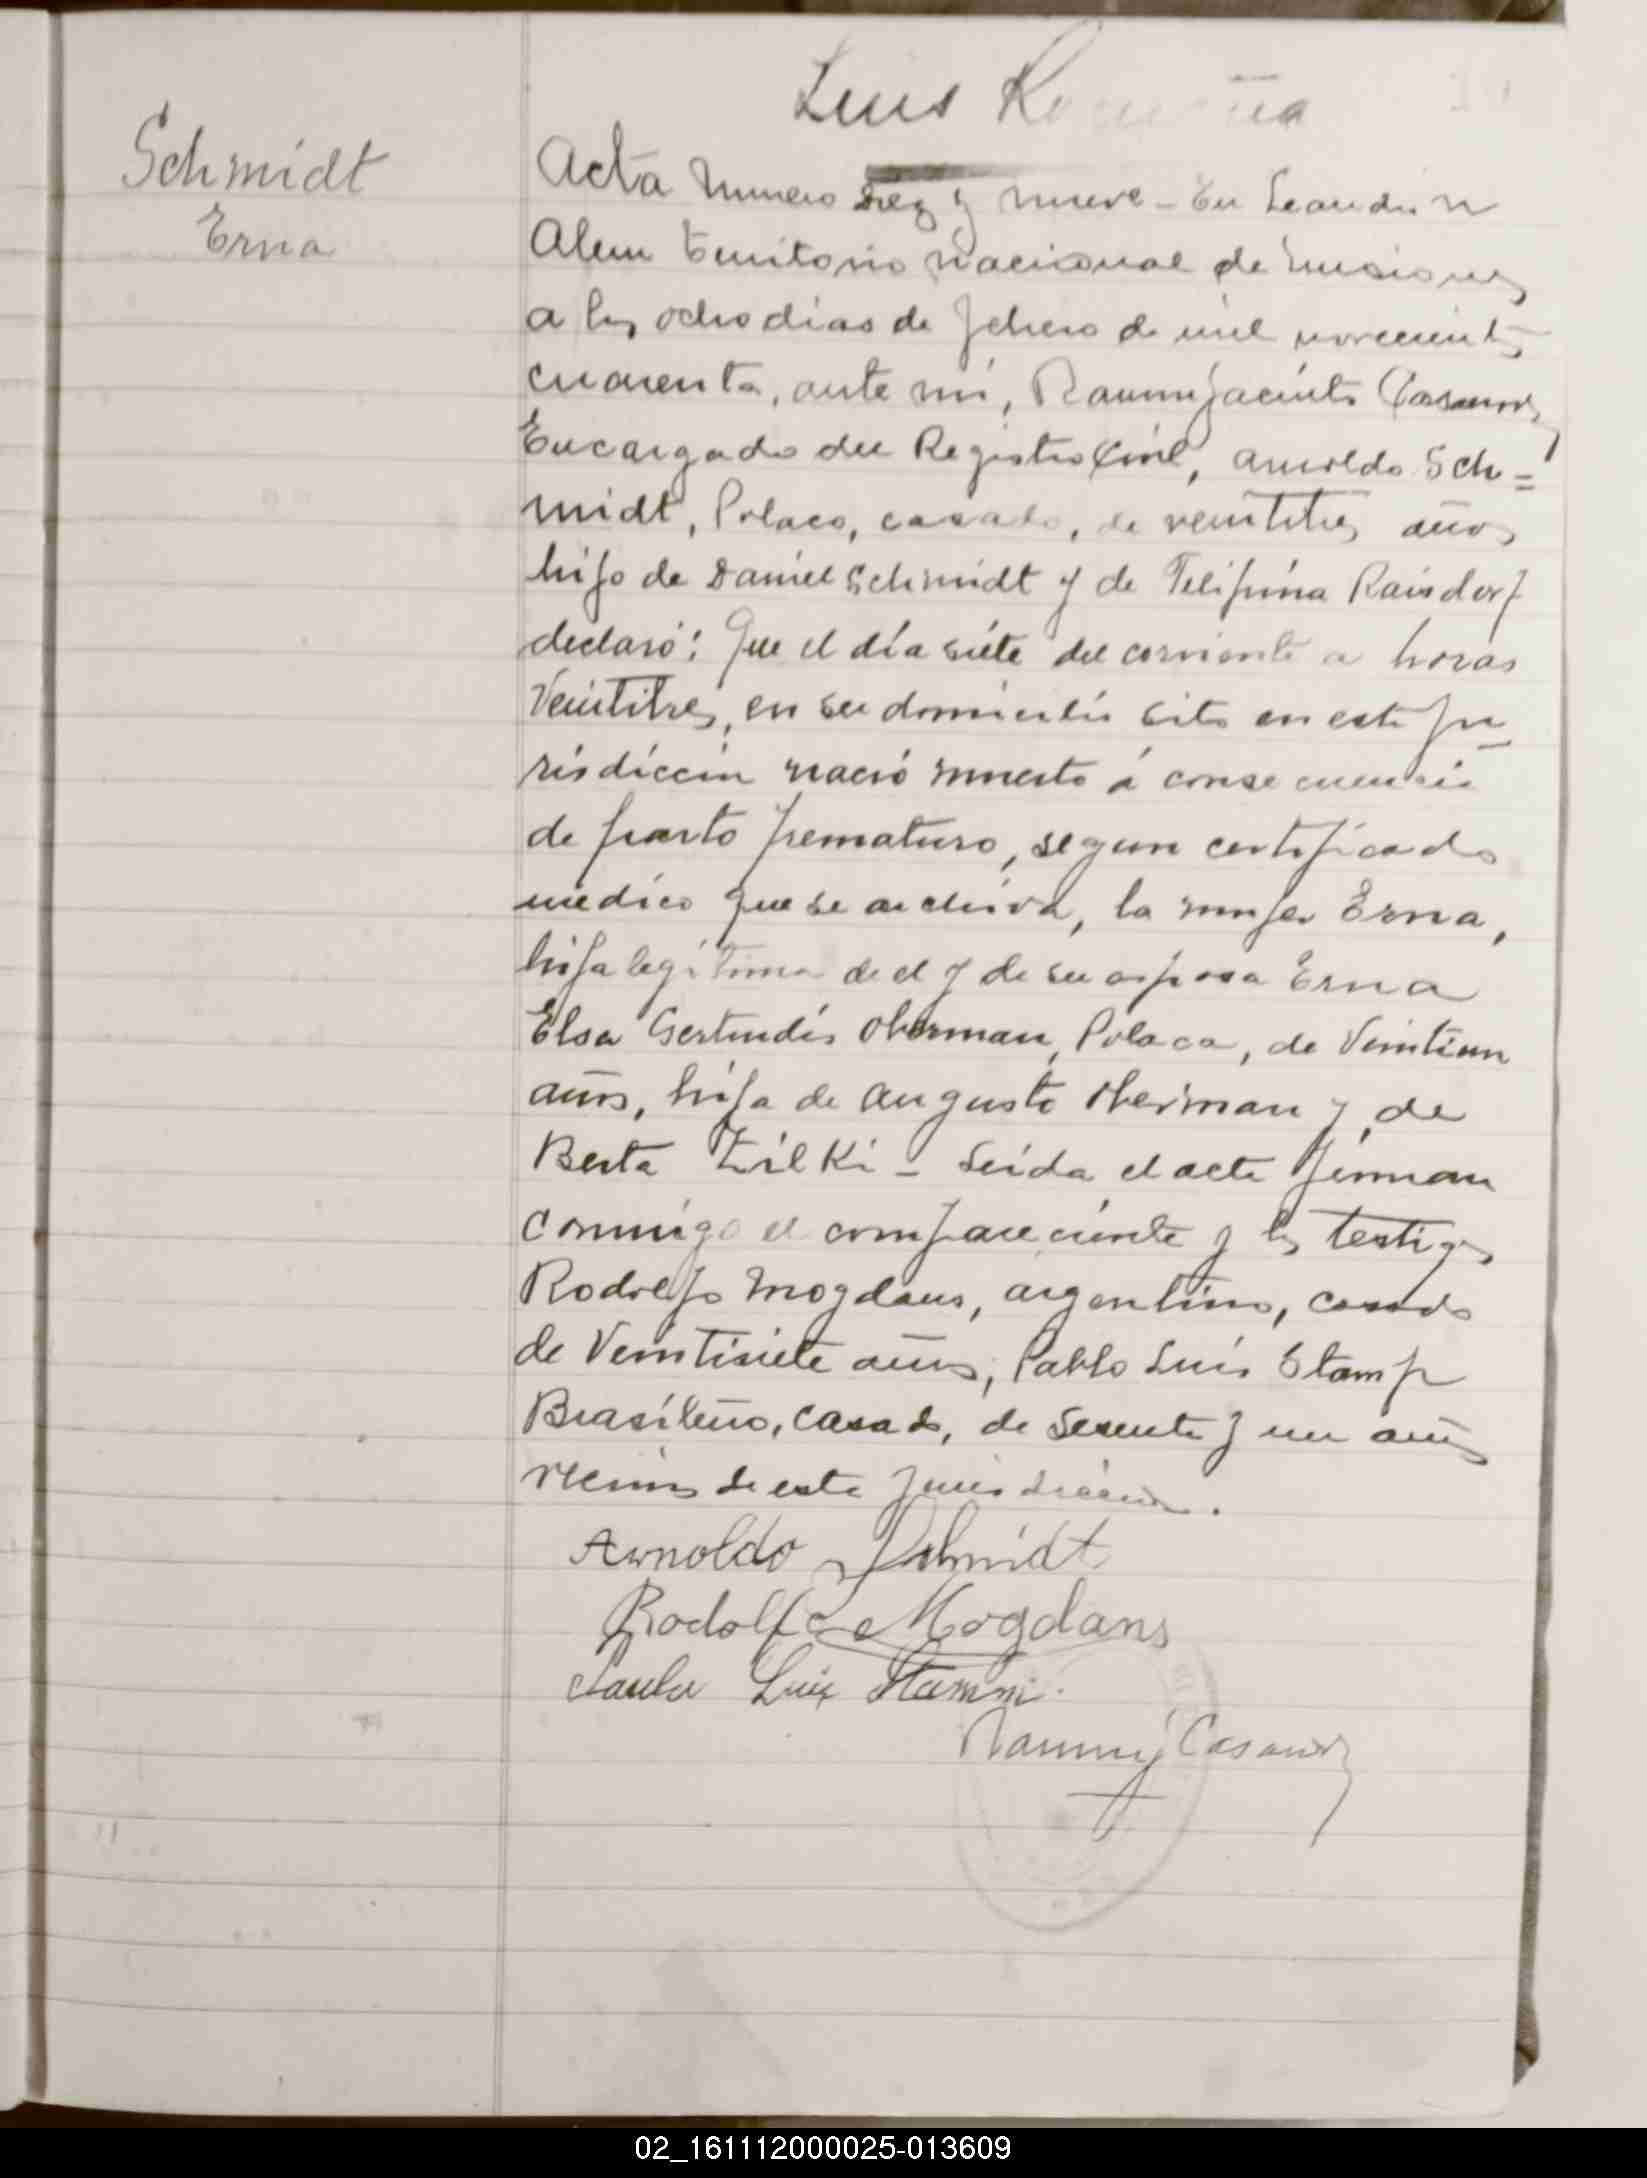 Luis
Schmidt
Erna
Acta Numero Diez y nueve - En Leandro N
Alem Territorio Nacional de Misiones
a los ocho dias de febrero de mil novecientos
cuarenta, ante mí, Ramon Jacinto Casanova
Encargado del Registro Civil, Arnoldo Sch=
midt, Polaco, casado, de veintitres años
hijo de Daniel Schmidt y de Telifina Raisdorf
declaró: Que el día siete del corriente a horas
Veintitres, en su domicilio sito en esta ju_
risdiccin nació muerto á consecuencia
de parto prematuro, segun certificado
medico que se archiva, la mujer Erna,
hija legítima de el y de su esposa Erna
Elsa Gertrudis Oberman, Polaca, de Veintiun
años, hija de Augusto Oberman y de
Berta Zilki - Leida el acta firman
conmigo el compareciente y los testigos
Rodolfo Mogdans, argentino, casado
de Veintisiete años, Pablo Luis Stamp
Brasileño, casado, de sesenta y un años
vecinos de esta jurisdiccion.
Arnoldo Schmidt
Rodolfo Mogdans
Luis Stamm
Ramon J Casanova
02_161112000025-013609